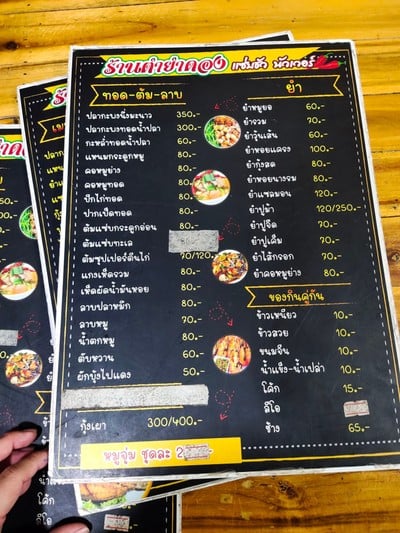 ร้านตำยำดอง แซ่บตัว นัวเวอร์
ทอด-ต้ม-ลาบ
ปลากะพงนึ่งมะนาว 350.-
ปลากะพงทอดน้ำปลา 300.-
กะหล่ำทอดน้ำปลา 60.-
แหนมกระดูกหมู 80.-
คอหมูย่าง 80.-
คอหมูทอด 80.-
ปีกไก่ทอด 80.-
ปากเป็ดทอด 80.-
ต้มแซ่บกระดูกอ่อน
ต้มแซ่บทะเล
ต้มซุปเปอร์ตีนไก่ 70/120.-
แกงเห็ดรวม 80.-
เห็ดผัดน้ำมันหอย 80.-
ลาบปลาหมึก 80.-
ลาบหมู 70.-
น้ำตกหมู 80.-
ตับหวาน 60.-
ผักบุ้งไฟแดง 50.-
กุ้งเผา 300/400.-
หมูจุ่ม ชุดละ 2
ยำ
ยำหมูยอ 60.-
ยำรวม 70.-
ยำวุ้นเส้น 60.-
ยำหอยแครง 100.-
ยำกุ้งสด 80.-
ยำหอยนางรม 80.-
ยำแซลมอน 120.-
ยำปูม้า 120/250.-
ยำปูจืด 70.-
ยำปูเค็ม 70.-
ยำไส้กรอก 70.-
ยำคอหมูย่าง 80.-
ของกินคู่กัน
ข้าวเหนียว 10.-
ข้าวสวย 10.-
ขนมจีน 10.-
น้ำแข็ง-น้ำเปล่า 10.-
โค้ก 15.-
ลีโอ
ช้าง 65.-
โค้ก
ลีโอ